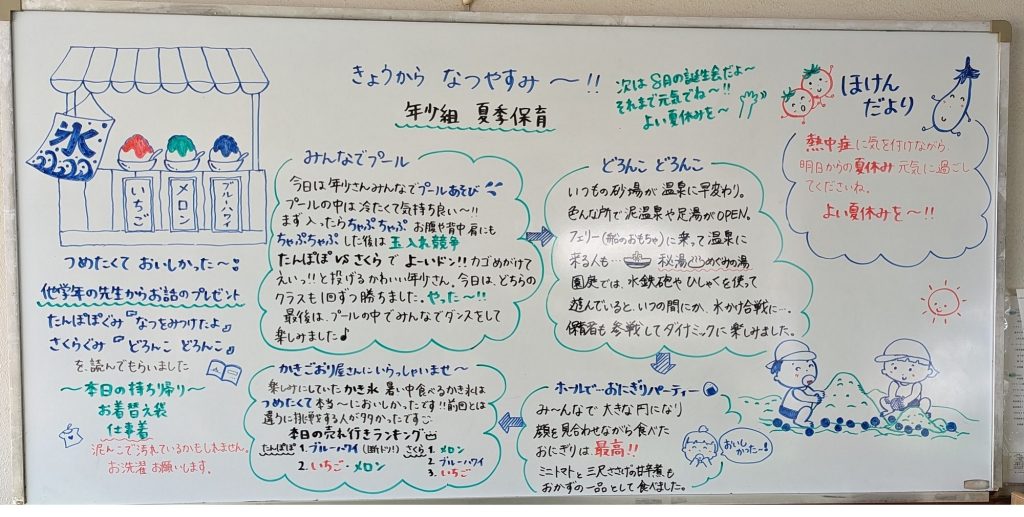 きょうから なつやすみ ～!!
年少組 夏季保育
次は 8月の誕生会だよ～
それまで元気でね～!!
よい夏休みを～
ほけん
だより
熱中症に気を付けながら、
明日からの夏休み 元気に過ごし
てくださいね。
よい夏休みを～!!
氷
いちご
メロン
ブルーハワイ
つめたくて おいしかった～!
他学年の先生からお話のプレゼント
たんぽぽぐみ『なつをみつけたよ』
さくらぐみ『どろんこ どろんこ』
を、読んでもらいました
～本日の持ち帰り～
お着替え袋
仕事着
泥んこで汚れているかもしれません。
お洗濯 お願いします。
みんなでプール
今日は年少さんみんなでプールあそび
プールの中は冷たくて気持ち良い～!!
まず入ったらちゃぷちゃぷ お腹や背中 肩にも
ちゃぷちゃぷした後は 玉入れ競争
たんぽぽ VS さくら で よーいドン!! カゴめがけて
えいっ!! と投げるかわいい年少さん。今日は、どちらの
クラスも1回ずつ勝ちました。やった～!!
最後は、プールの中でみんなでダンスをして
楽しみました♪
どろんこ どろんこ
いつもの砂場が 温泉に早変わり。
色んな所で泥温泉や足湯がOPEN。
フェリー(船のおもちゃ)に乗って温泉に
来る人も… 秘湯 めぐみの湯
園庭では、水鉄砲やひしゃくを使って
遊んでいると、いつの間にか、水かけ合戦に…。
保育者も参戦してダイナミックに楽しみました。
ホールで…おにぎりパーティー
み～んなで 大きな円になり
顔を見合わせながら食べた
おにぎりは、最高!!
ミニトマトと三尺ささげの甘辛煮も
おかずの一品として食べました。
おいしかったー!
かきごおり屋さんにいらっしゃいませ～
楽しみにしていたかき氷 暑い中食べるかき氷は
つめたくて本当～においしかったです!! 前回とは
違う味に挑戦する人が多かったです
本日の売れ行きランキング
たんぽぽ 1. ブルーハワイ (断トツ!)
2. いちご・メロン
さくら 1. メロン
2. ブルーハワイ
3. いちご